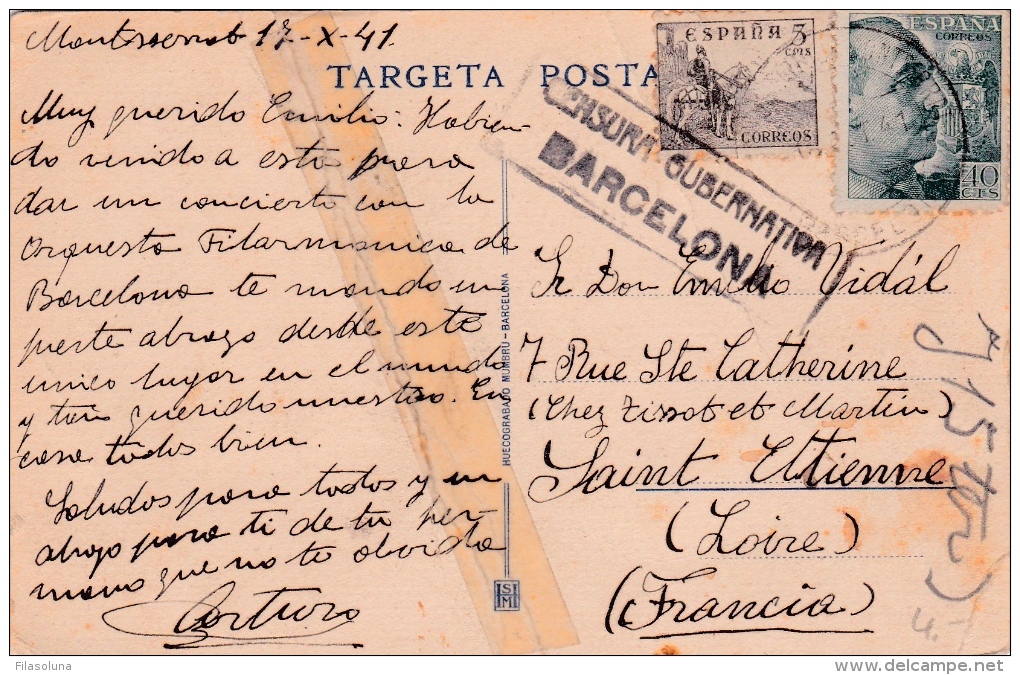 Montserrat 17-X-41.
TARGETA POSTA
Muy querido Emilio: Habien-
do venido a esto para
dar un concierto con la
Orquesta Filarmonica de
Barcelona te mando un
fuerte abrazo desde este
unico lugar en el mundo
y tan querido nuestro. En
casa todos bien.
Saludos para todos y un
abrazo para ti de tu her-
mano que no te olvida
Arturo
HUECOGRABADO MUMBRU - BARCELONA
ESPAÑA 5
CTS
CORREOS
ESPAÑA
CORREOS
40
CTS
CENSURA GUBERNATIVA
BARCELONA
Sr Don Emilio Vidál
7 Rue Ste Catherine
(Chez Tissot et Martin)
Saint Ettienne
(Loire)
(Francia)
Filasoluna
www.delcampe.net